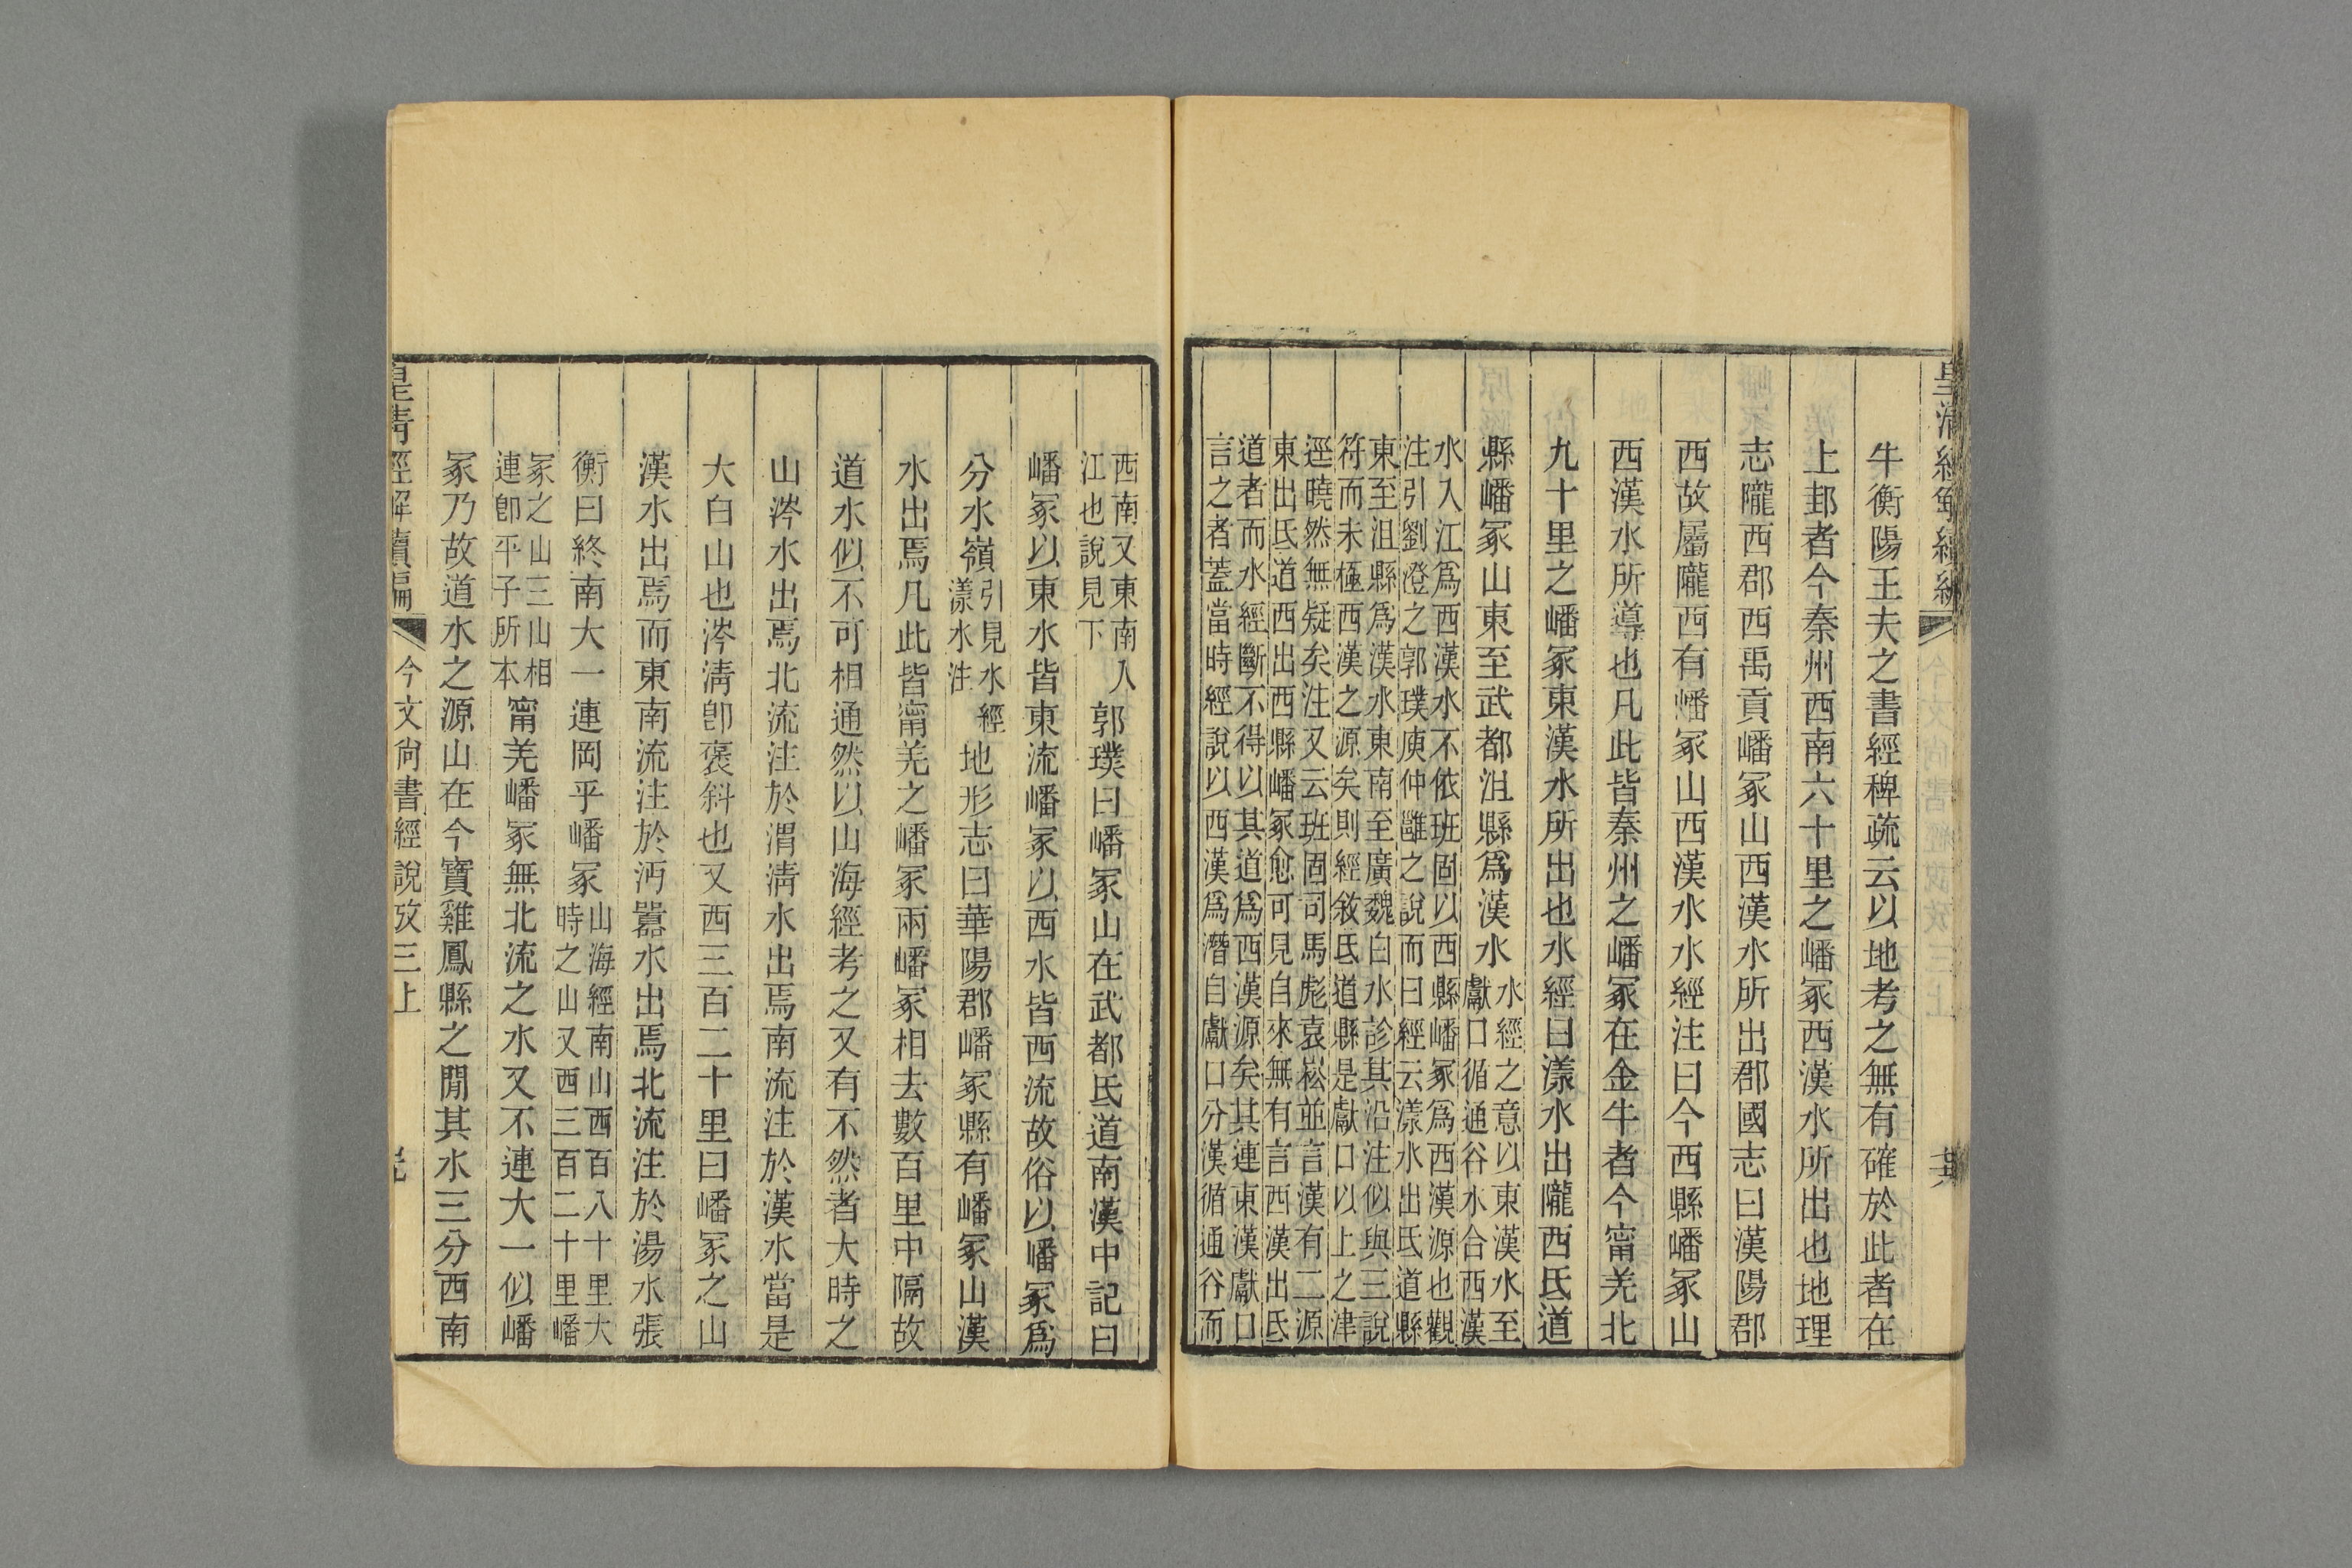 牛衡陽王夫之書經稗疏云以地考之無有確於此者在
上邽者今秦州西南六十里之嶓冢西漢水所出也地理
志隴西郡西禹貢嶓冢山西漢水所出郡國志曰漢陽郡
西故屬隴西有嶓冢山西漢水水經注曰今西縣嶓冢山
西漢水所導也凡此皆秦州之嶓冢在金牛者今甯羌北
九十里之嶓冢東漢水所出也水經曰漾水出隴西氐道
縣嶓冢山東至武都沮縣爲漢水
水經之意以東漢水至
獻口循通谷水合西漢
水入江爲西漢水不依班固以西縣嶓冢爲西漢源也觀
注引劉澄之郭璞庾仲雝之說而曰經云漾水出氐道縣
東至沮縣爲漢水東南至廣魏白水診其沿注似與三說
符而未極西漢之源矣則經敘氐道縣是獻口以上之津
逕曉然無疑矣注又云班固司馬彪袁崧並言漢有二源
東出氐道西出西縣嶓冢愈可見自來無有言西漢出氐
道者而水經斷不得以其道爲西漢源矣其連東漢獻口
言之者蓋當時經說以西漢爲潛自獻口分漢循通谷而
西南又東南入
江也說見下
郭璞曰嶓冢山在武都氐道南漢中記曰
嶓冢以東水皆東流嶓冢以西水皆西流故俗以嶓冢爲
分水嶺
引見水經
漾水注
地形志曰華陽郡嶓冢縣有嶓冢山漢
水出焉凡此皆甯羌之嶓冢兩嶓冢相去數百里中隔故
道水似不可相通然以山海經考之又有不然者大時之
山涔水出焉北流注於渭清水出焉南流注於漢水當是
大白山也涔清卽褒斜也又西三百二十里曰嶓冢之山
漢水出焉而東南流注於沔囂水出焉北流注於湯水張
衡曰終南大一連岡乎嶓冢
山海經南山西百八十里大
時之山又西三百二十里嶓
冢之山三山相
連卽平子所本
甯羌嶓冢無北流之水又不連大一似嶓
冢乃故道水之源山在今寶雞鳳縣之閒其水三分西南
皇清經解續編
今文尙書經說攷三上